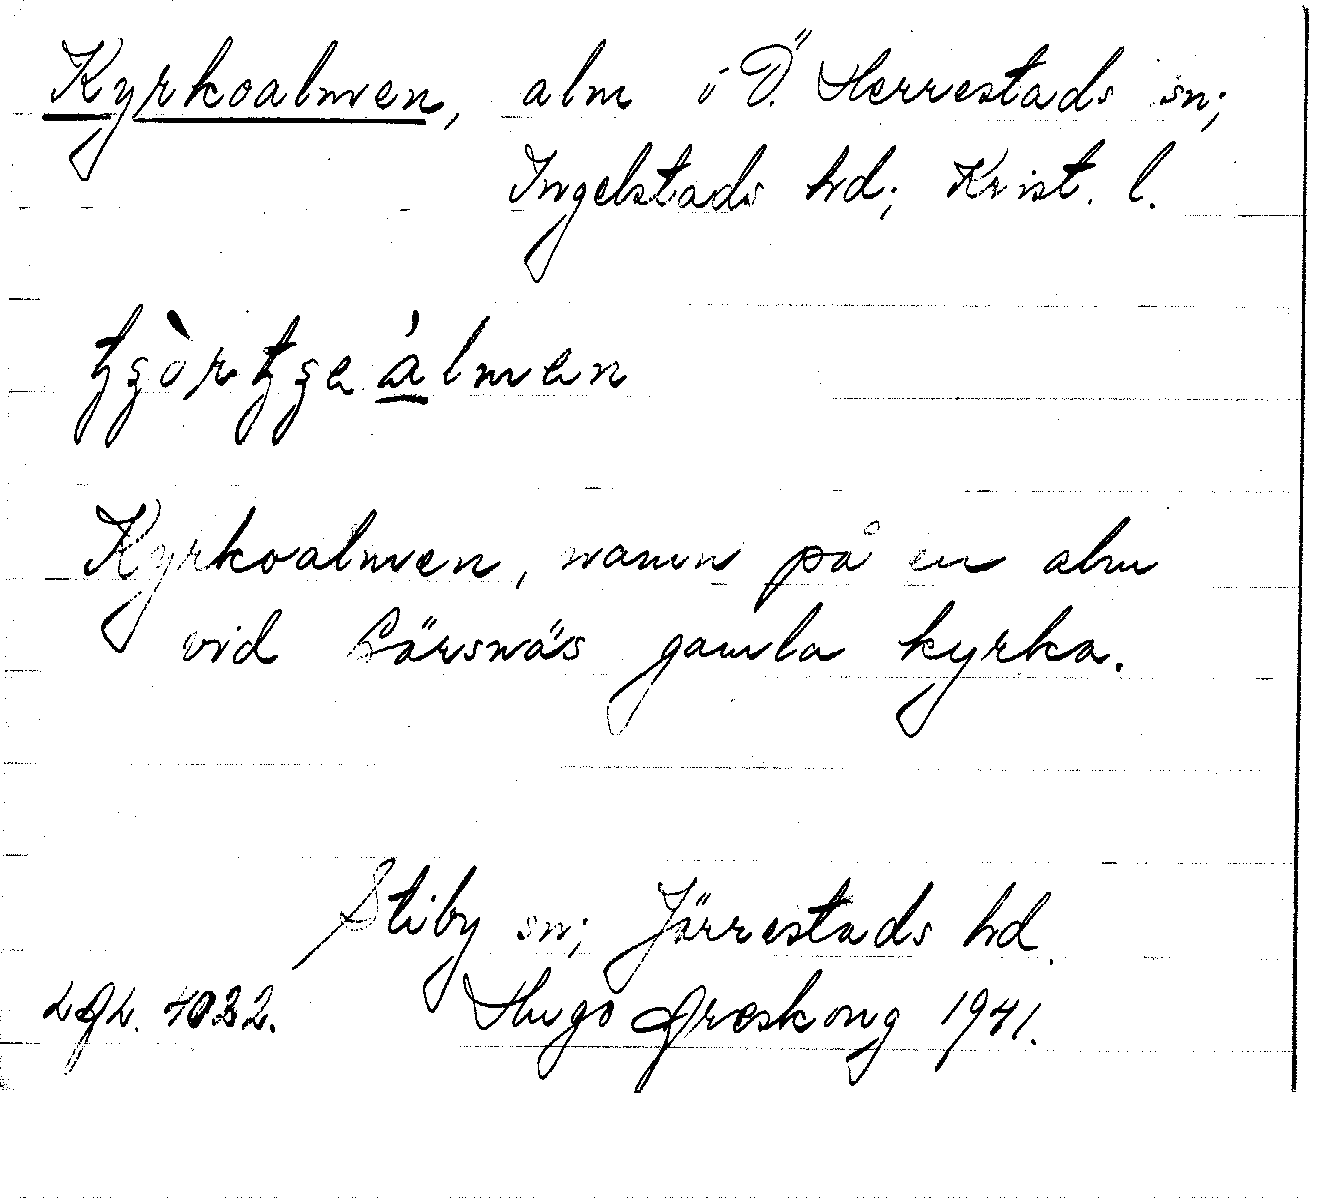 Kyrkoalmen, alm i Ö. Herrestads sn;
Ingelstads hd; Krist. l.
Kyrkoalmen, namn på en alm
vid Bärsnäs gamla kyrka.
Stiby sn; Järrestads hd.
LGL. 4032. Hugo Areskoug 1941.